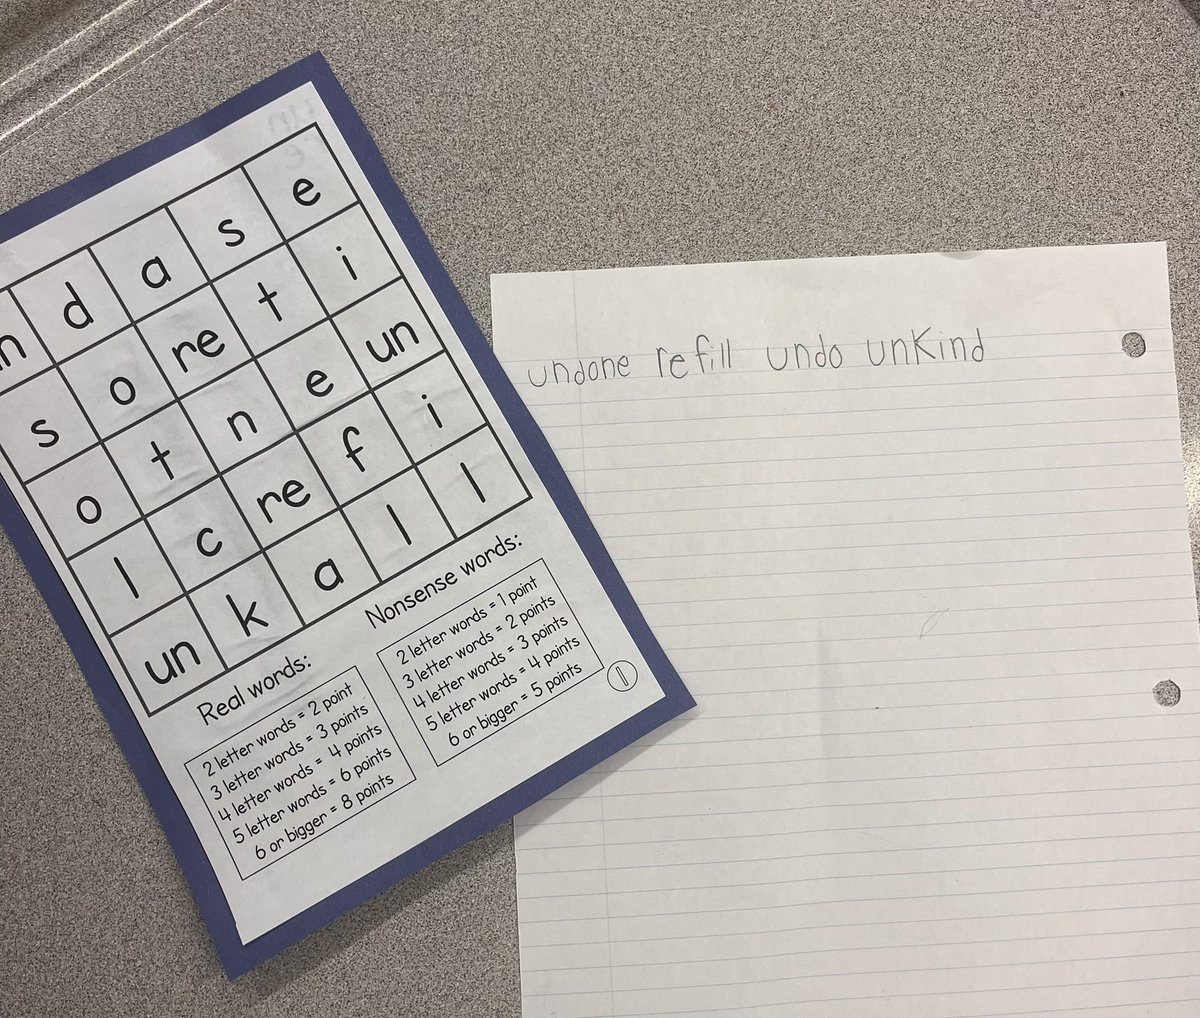 n d a s e
s o re t i
o t n e un
l c re f i
un k a l l
Real words:
2 letter words = 2 point
3 letter words = 3 points
4 letter words = 4 points
5 letter words = 6 points
6 or bigger = 8 points
Nonsense words:
2 letter words = 1 point
3 letter words = 2 points
4 letter words = 3 points
5 letter words = 4 points
6 or bigger = 5 points
1
undone refill undo unKind